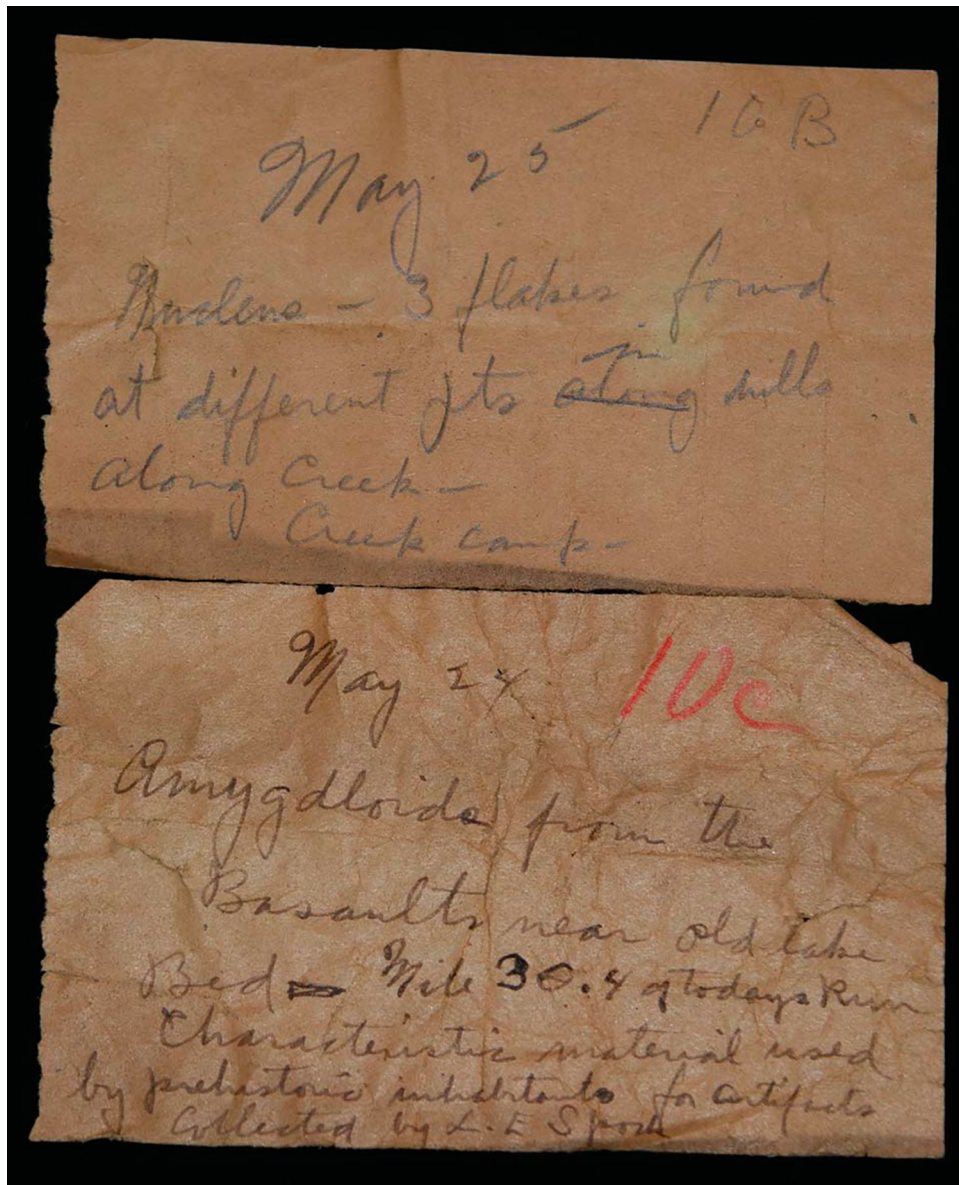 10 B
May 25
Nucleus – 3 flakes found
in
at different pts along hills
along Creek –
Creek camp –
May 24
10c
Amygdloids from the
Basaults near old lake
Bed – Mile 30.4 of todays Run
Characteristic material used
by prehistoric inhabitants for artifacts
Collected by L. E Spock